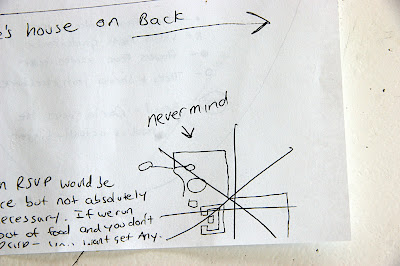 e's house on Back
nevermind
n RSVP would be
ce but not absolutely
ecessary. If we run
out of food and you don't
RSVP - you won't get any.